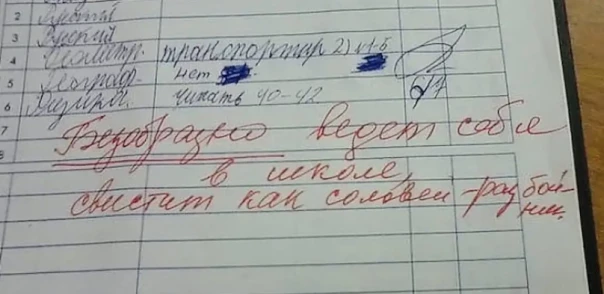 2 Русский
3 Русский
4 Геометр. транспортир 2) п1-5
5 Географ. нет
6 читать 40-42
7 Безобразно ведет себя
8 в школе,
свистит как соловей-разбой-
ник.